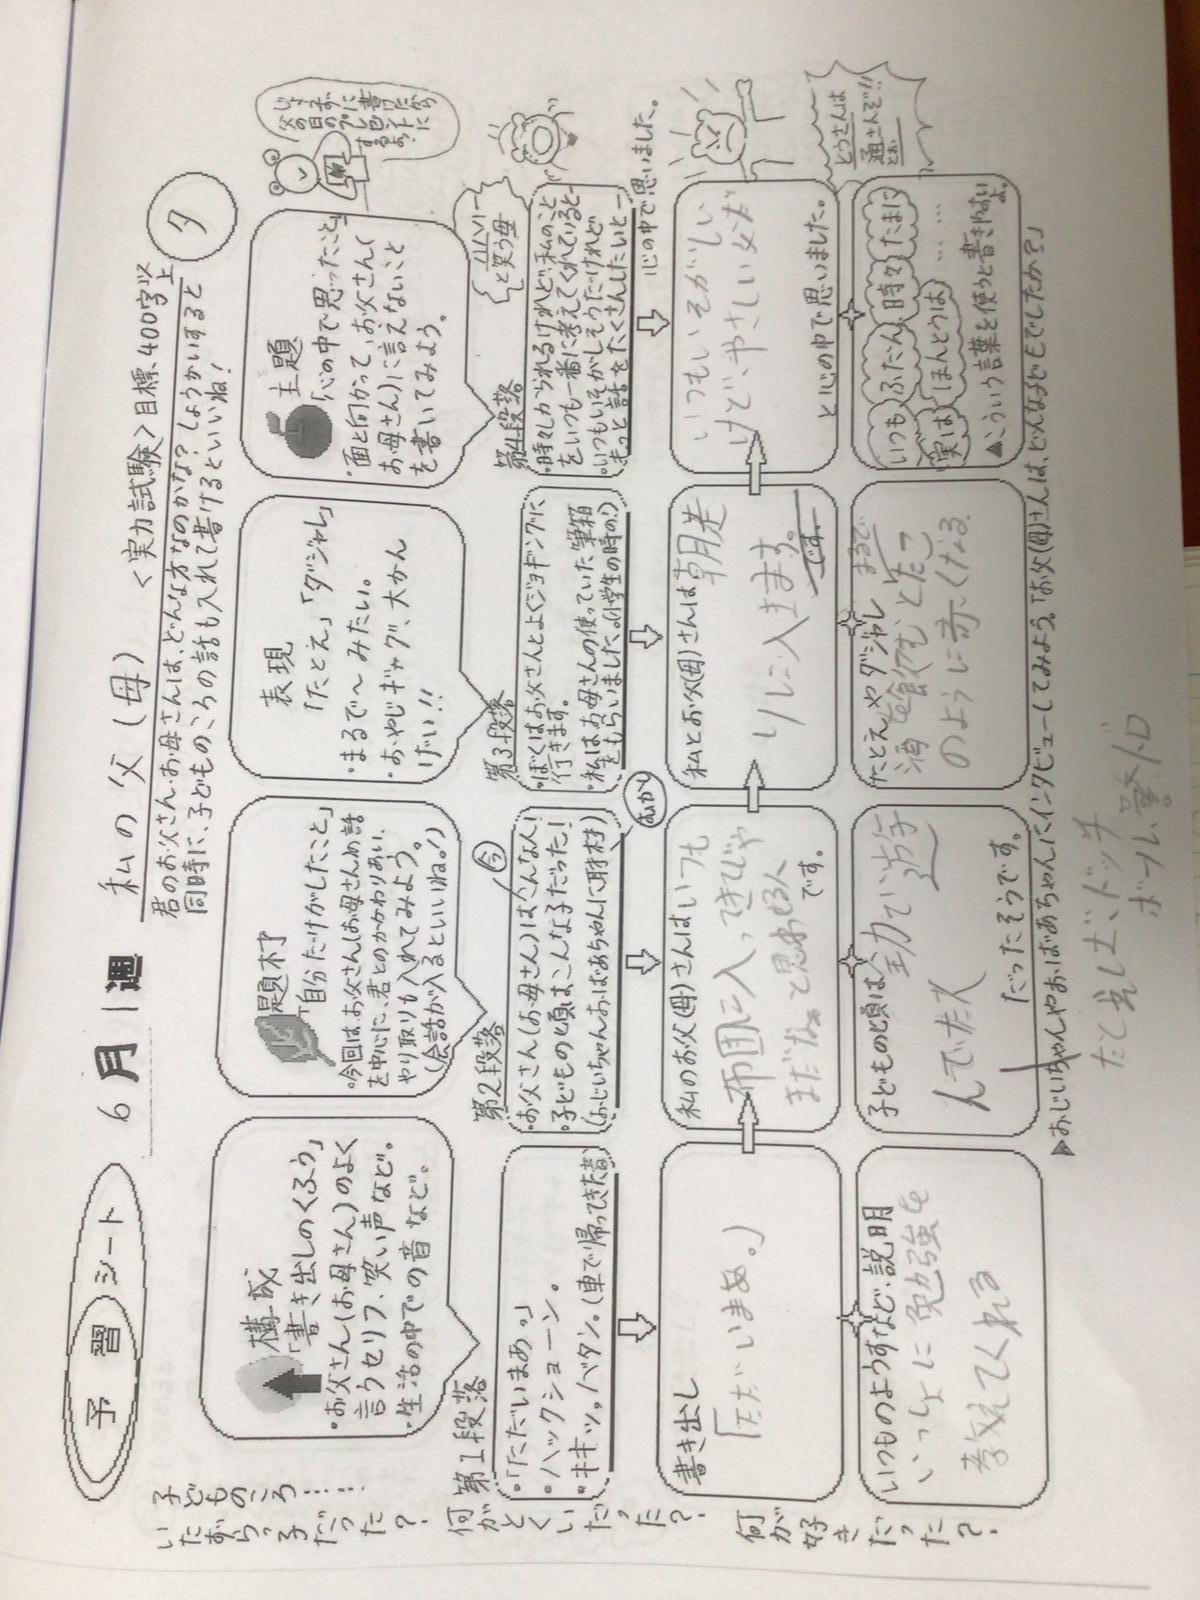 予習シート
6月1週
私の父(母)
<実力試験>目標400字以上
夕
君のお父さん・お母さんは、どんな方なのかな?しょうかいすると
同時に、子どものころの話も入れて書けるといいね!
子どものころ……
いたずらっ子だった?
何がとくいだった?
何が好きだった?
構成
「書き出しのくふう」
・お父さん(お母さん)のよく
言うセリフ、笑い声など。
・生活の中での音など。
第1段落
・「ただいまあ。」
・ハックション。
・キキッ。バタン。(車で帰ってきた音)
書き出し
「ただいまぁ。」
いつものようすなど・説明
いっしょに勉強を
考えてくれる
題材
「自分だけがしたこと」
・今回は、お父さん(お母さん)の話
を中心に、君とのかかわりあい、
やり取りも入れてみよう。
(会話が入るといいね。)
第2段落
今
・お父さん(お母さん)はこんな人!
・子どもの頃はこんな子だった!
(おじいちゃんおばあちゃんに取材)
むかし
私のお父(母)さんはいつも
布団に入ってきてじゃ
まだなあと思わせる人
です。
子どもの頃は全力で遊
んでた人
だったそうです。
表現
「たとえ」「ダジャレ」
・まるで〜みたい。
・おやじギャグ、大かん
げい!!
第3段落
・ぼくはお父さんとよくジョギングに
行きます。
・私はお母さんの使っていた筆箱
をもらいました。(小学生の時の。)
私とお父(母)さんは朝走
りに入きます。
です。
たとえやダジャレ まるで
酒を飲むとたこ
のように赤くなる。
主題
「心の中で思ったこと」
・面と向かって、お父さん(
お母さん)に言えないこと
を書いてみよう。
じょうずに書けたら
父の日のプレゼントに
するよ。
第4段落
ハハハハ
と笑う母
・時々しかられるけれど、私のこと
をいつも一番に考えてくれていると…
・いつもいそがしそうだけれど
もっと話をたくさんしたいと…
心の中で思いました。
いつもいそがしい
けど、やさしい父だ
と心の中で思いました。
いつも ふだん 時々 たまに
実は ほんとうは ……
▲こういう言葉を使うと書きやすいよ。
とうさんは
通さんぞ!!
とお
▶おじいちゃんやおばあちゃんにインタビューしてみよう。「お父(母)さんは、どんな子どもでしたか?」
たとえばドッチ
ボール、警ドロ